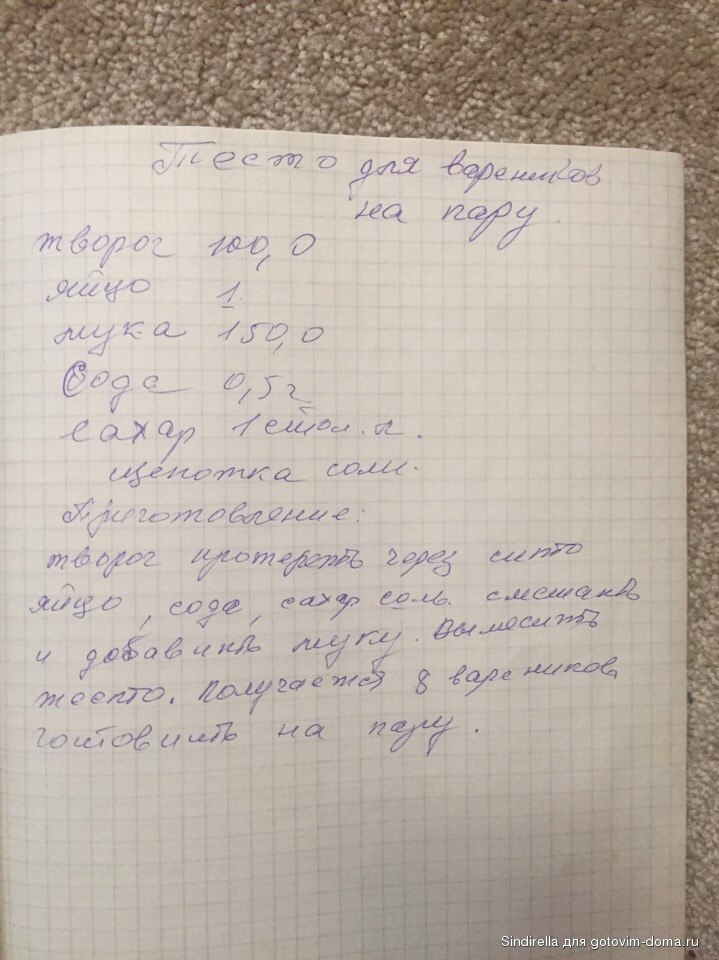 Тесто для вареников
на пару.
творог 100,0
яйцо 1
мука 150,0
Сода 0,5 г
сахар 1 стол. л.
щепотка соли.
Приготовление:
творог протереть через сито
яйцо, сода, сахар соль смешать
и добавить муку. Вымесить
тесто. Получается 8 вареников
готовить на пару.
Sindirella для gotovim-doma.ru